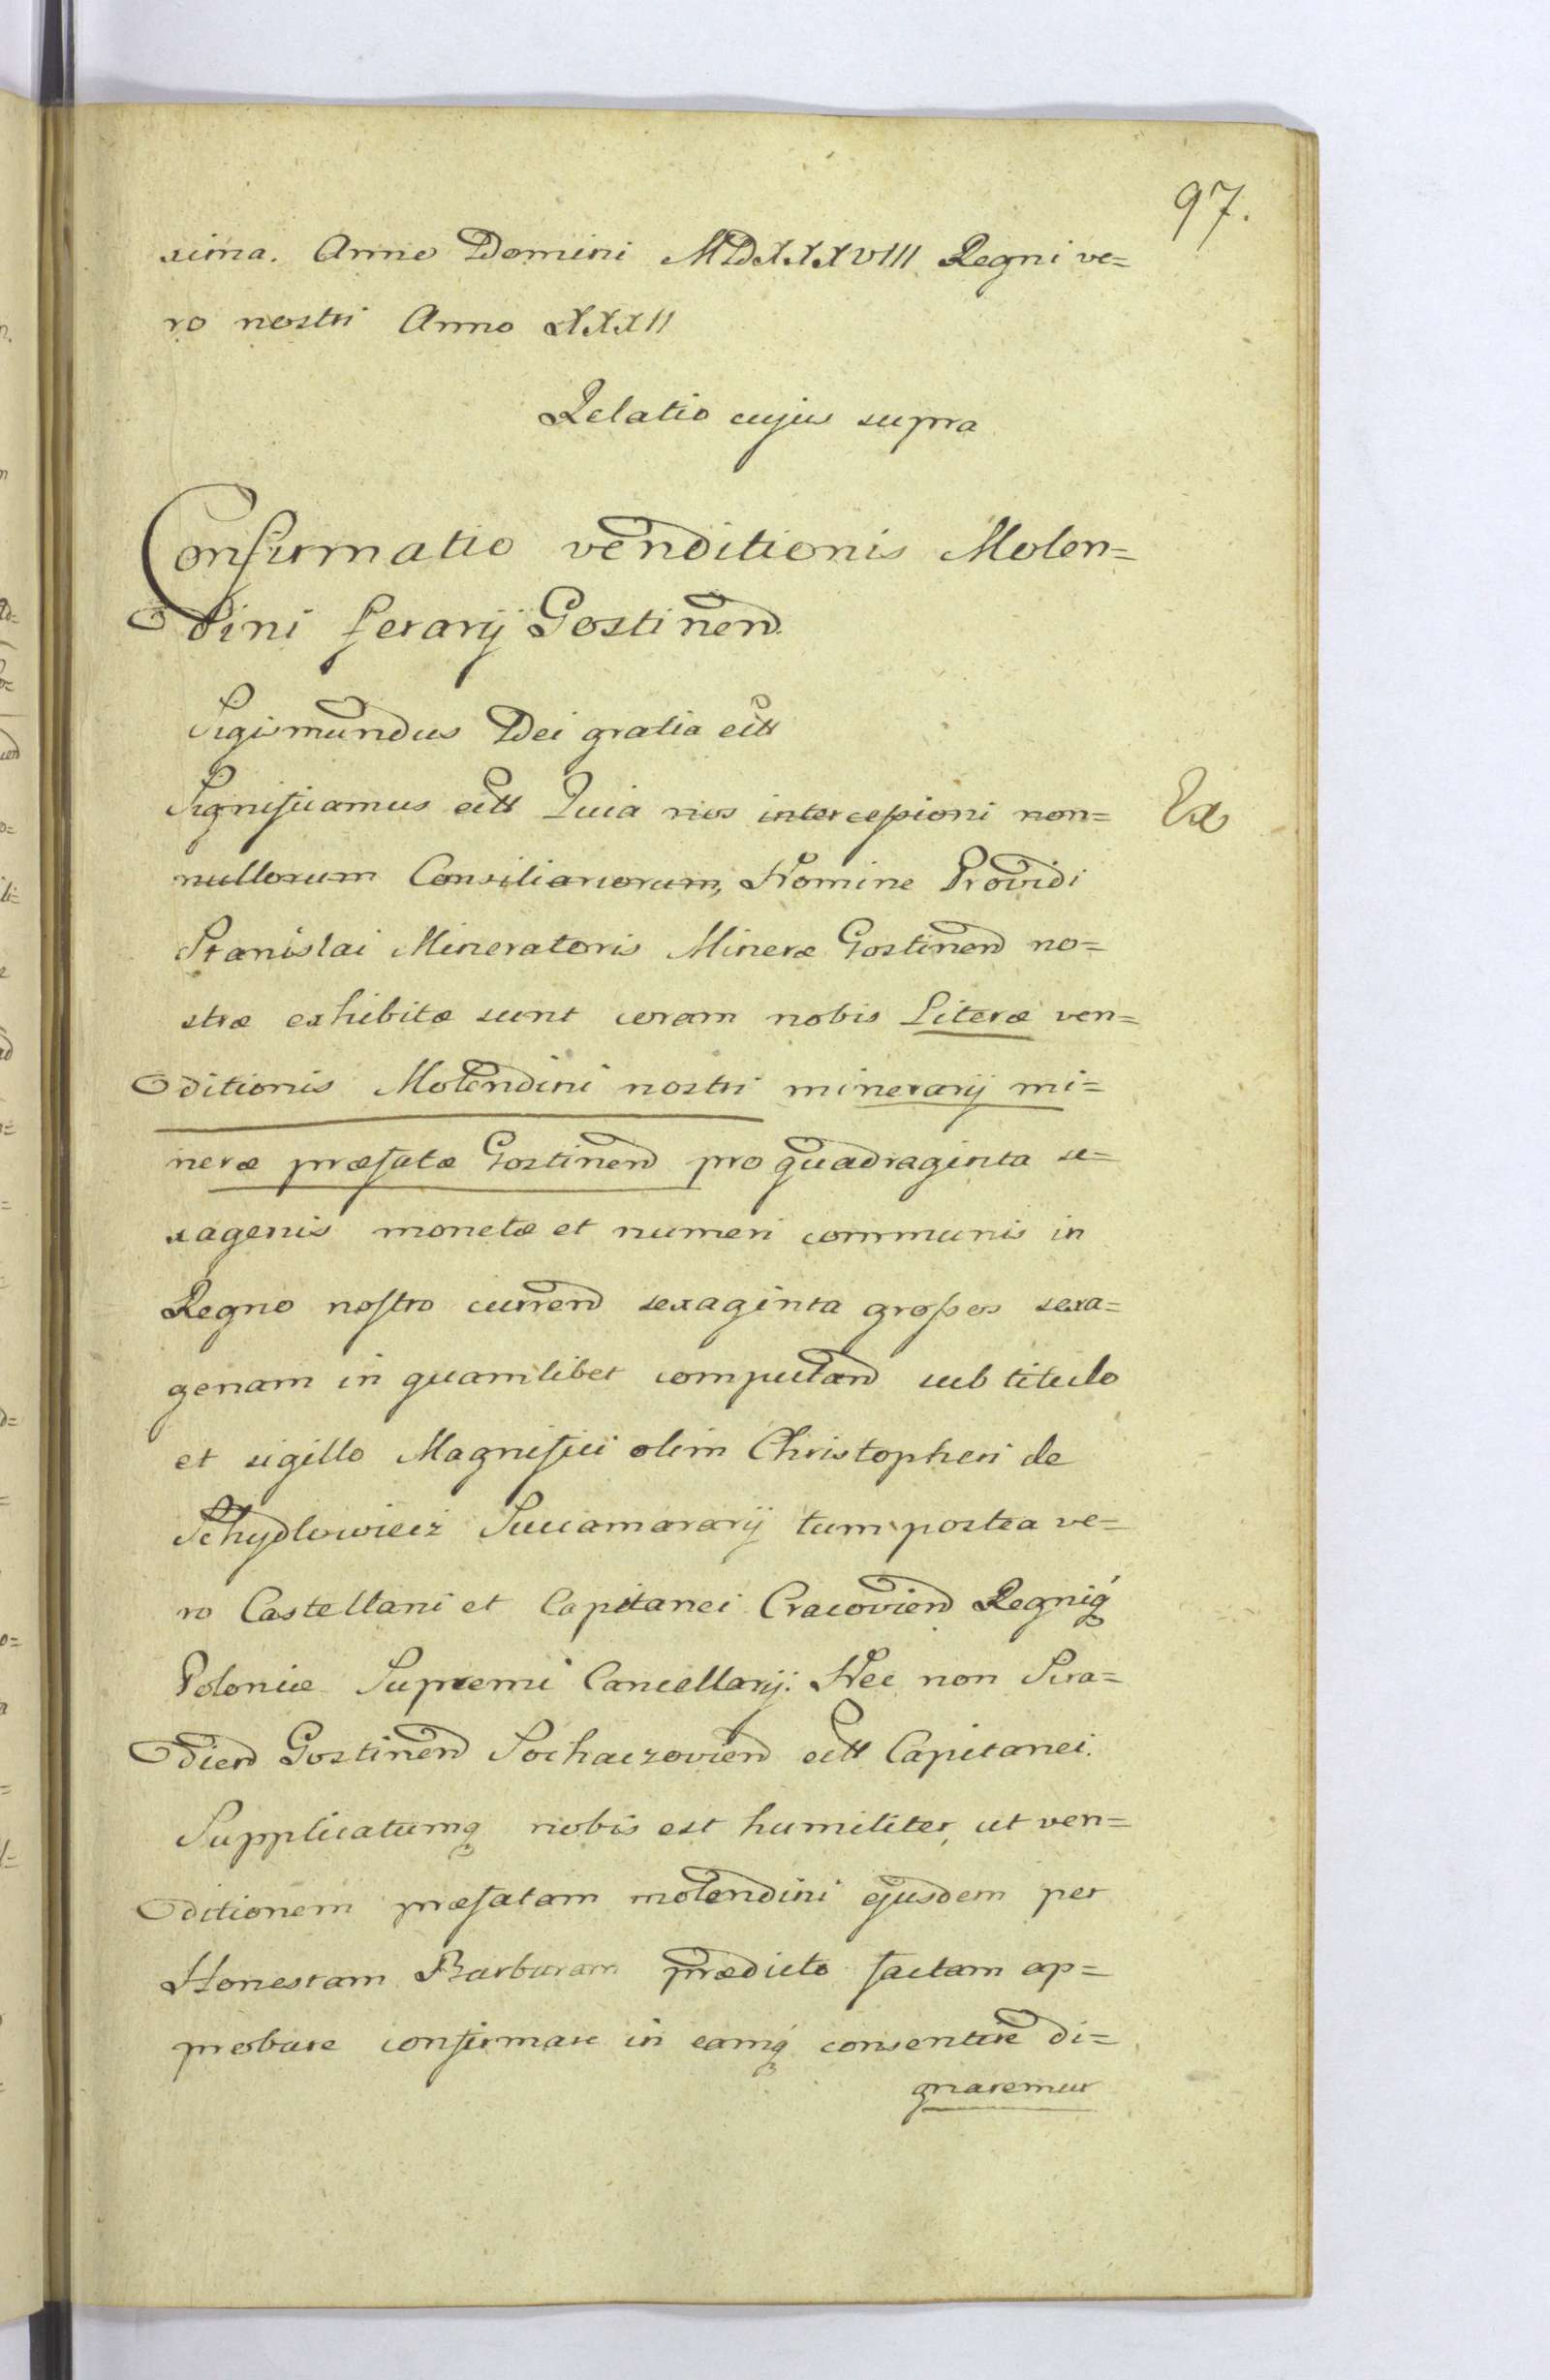 97.
xima. Anno Domini MDXXXVIII Regni ve=
ro nostri Anno XXXII
Relatio cujus supra
Confirmatio venditionis Molen=
dini ferarij Gostinen
Sigismundus Dei gratia ett
Significamus ett Quia nos intercessioni non=
nullorum Consiliariorum, Nomine Providi
Stanislai Mineratoris Mineræ Gostinen no=
stræ exhibitæ sunt coram nobis Literæ ven=
ditionis Molendini nostri minerarij mi=
neræ præfatæ Gostinen pro quadraginta se=
xagenis monetæ et numeri communis in
Regno nostro curren sexaginta grossos sexa=
genam in quamlibet computan sub titulo
et sigillo Magnifici olim Christopheri de
Schydlowiecz Succamerarij tum postea ve=
ro Castellani et Capitanei Cracovien Regniq
Poloniæ Supremi Cancellarij. Nec non Sira=
dien Gostinen Sochaczovien ett Capitanei.
Supplicatumq nobis est humiliter, ut ven=
ditionem præfatam molendini ejusdem per
Honestam Barbaram prædicto factam ap=
probare confirmare in eamq consentire di=
gnaremur